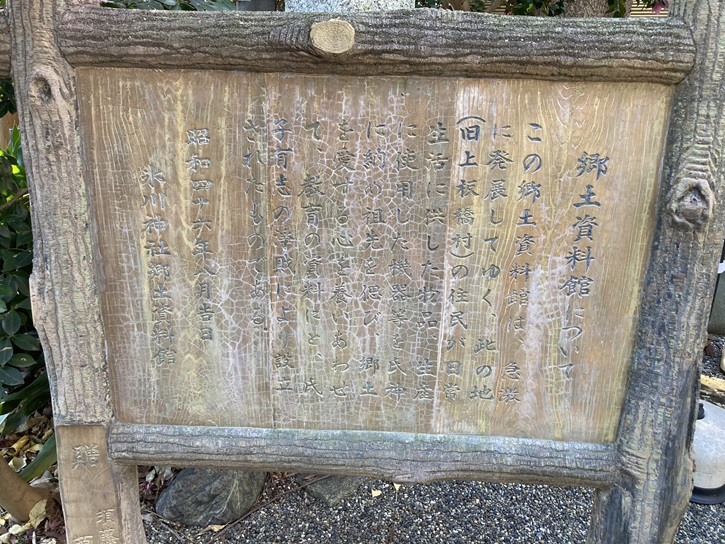 郷土資料館について
この郷土資料館は、急激
に発展してゆく、此の地
(旧上板橋村)の住民が日常
生活に供した物品、生産
に使用した機器等を氏神
に納め祖先を偲び、郷土
を愛する心を養いあわせ
て、教育の資料にと、氏
子有志の奉賛により設立
されたものである。
昭和四十六年八月吉日
氷川神社郷土資料館